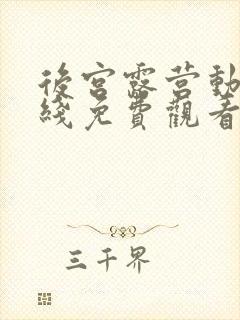 後宮露营動
綫免費觀看
三千界